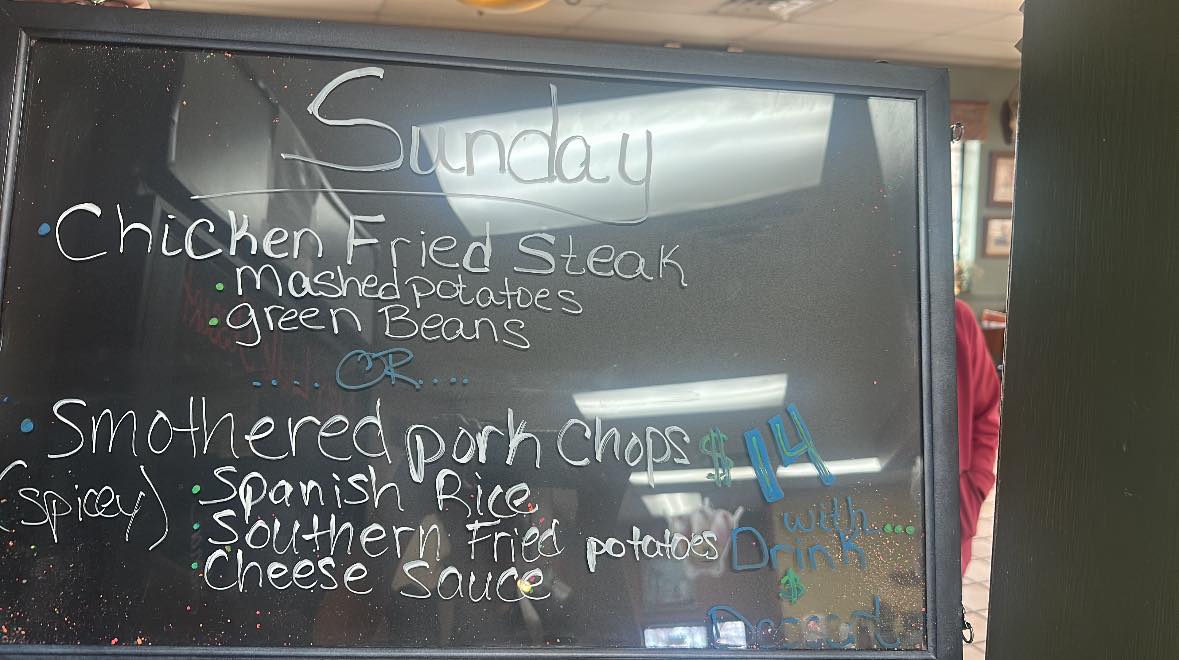 Sunday
• Chicken Fried Steak
• Mashed potatoes
• green Beans
..... OR.....
• Smothered pork Chops $14
(spicey) • Spanish Rice
• Southern Fried potatoes
• Cheese Sauce
with...
Drink
$
Dessert